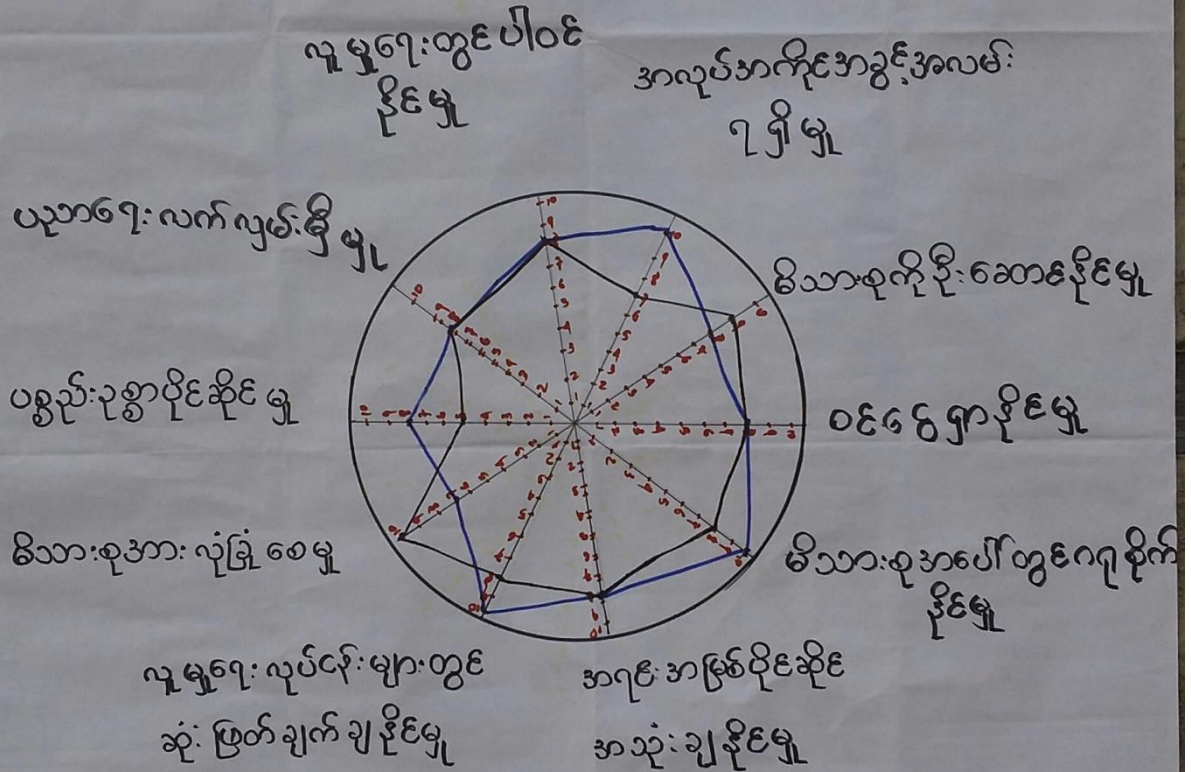 လူမှုရေးတွင်ပါဝင်
နိုင်မှု
အလုပ်အကိုင်အခွင့်အလမ်း
ရရှိမှု
ပညာရေးလက်လှမ်းမှီမှု
မိသားစုကိုဦးဆောင်နိုင်မှု
ပစ္စည်းဥစ္စာပိုင်ဆိုင်မှု
ဝင်ငွေရှာနိုင်မှု
မိသားစုအားလုံခြုံစေမှု
မိသားစုအပေါ်တွင်ဂရုစိုက်
နိုင်မှု
လူမှုရေးလုပ်ငန်းများတွင်
ဆုံးဖြတ်ချက်ချနိုင်မှု
အရင်းအမြစ်ပိုင်ဆိုင်
အသုံးချနိုင်မှု